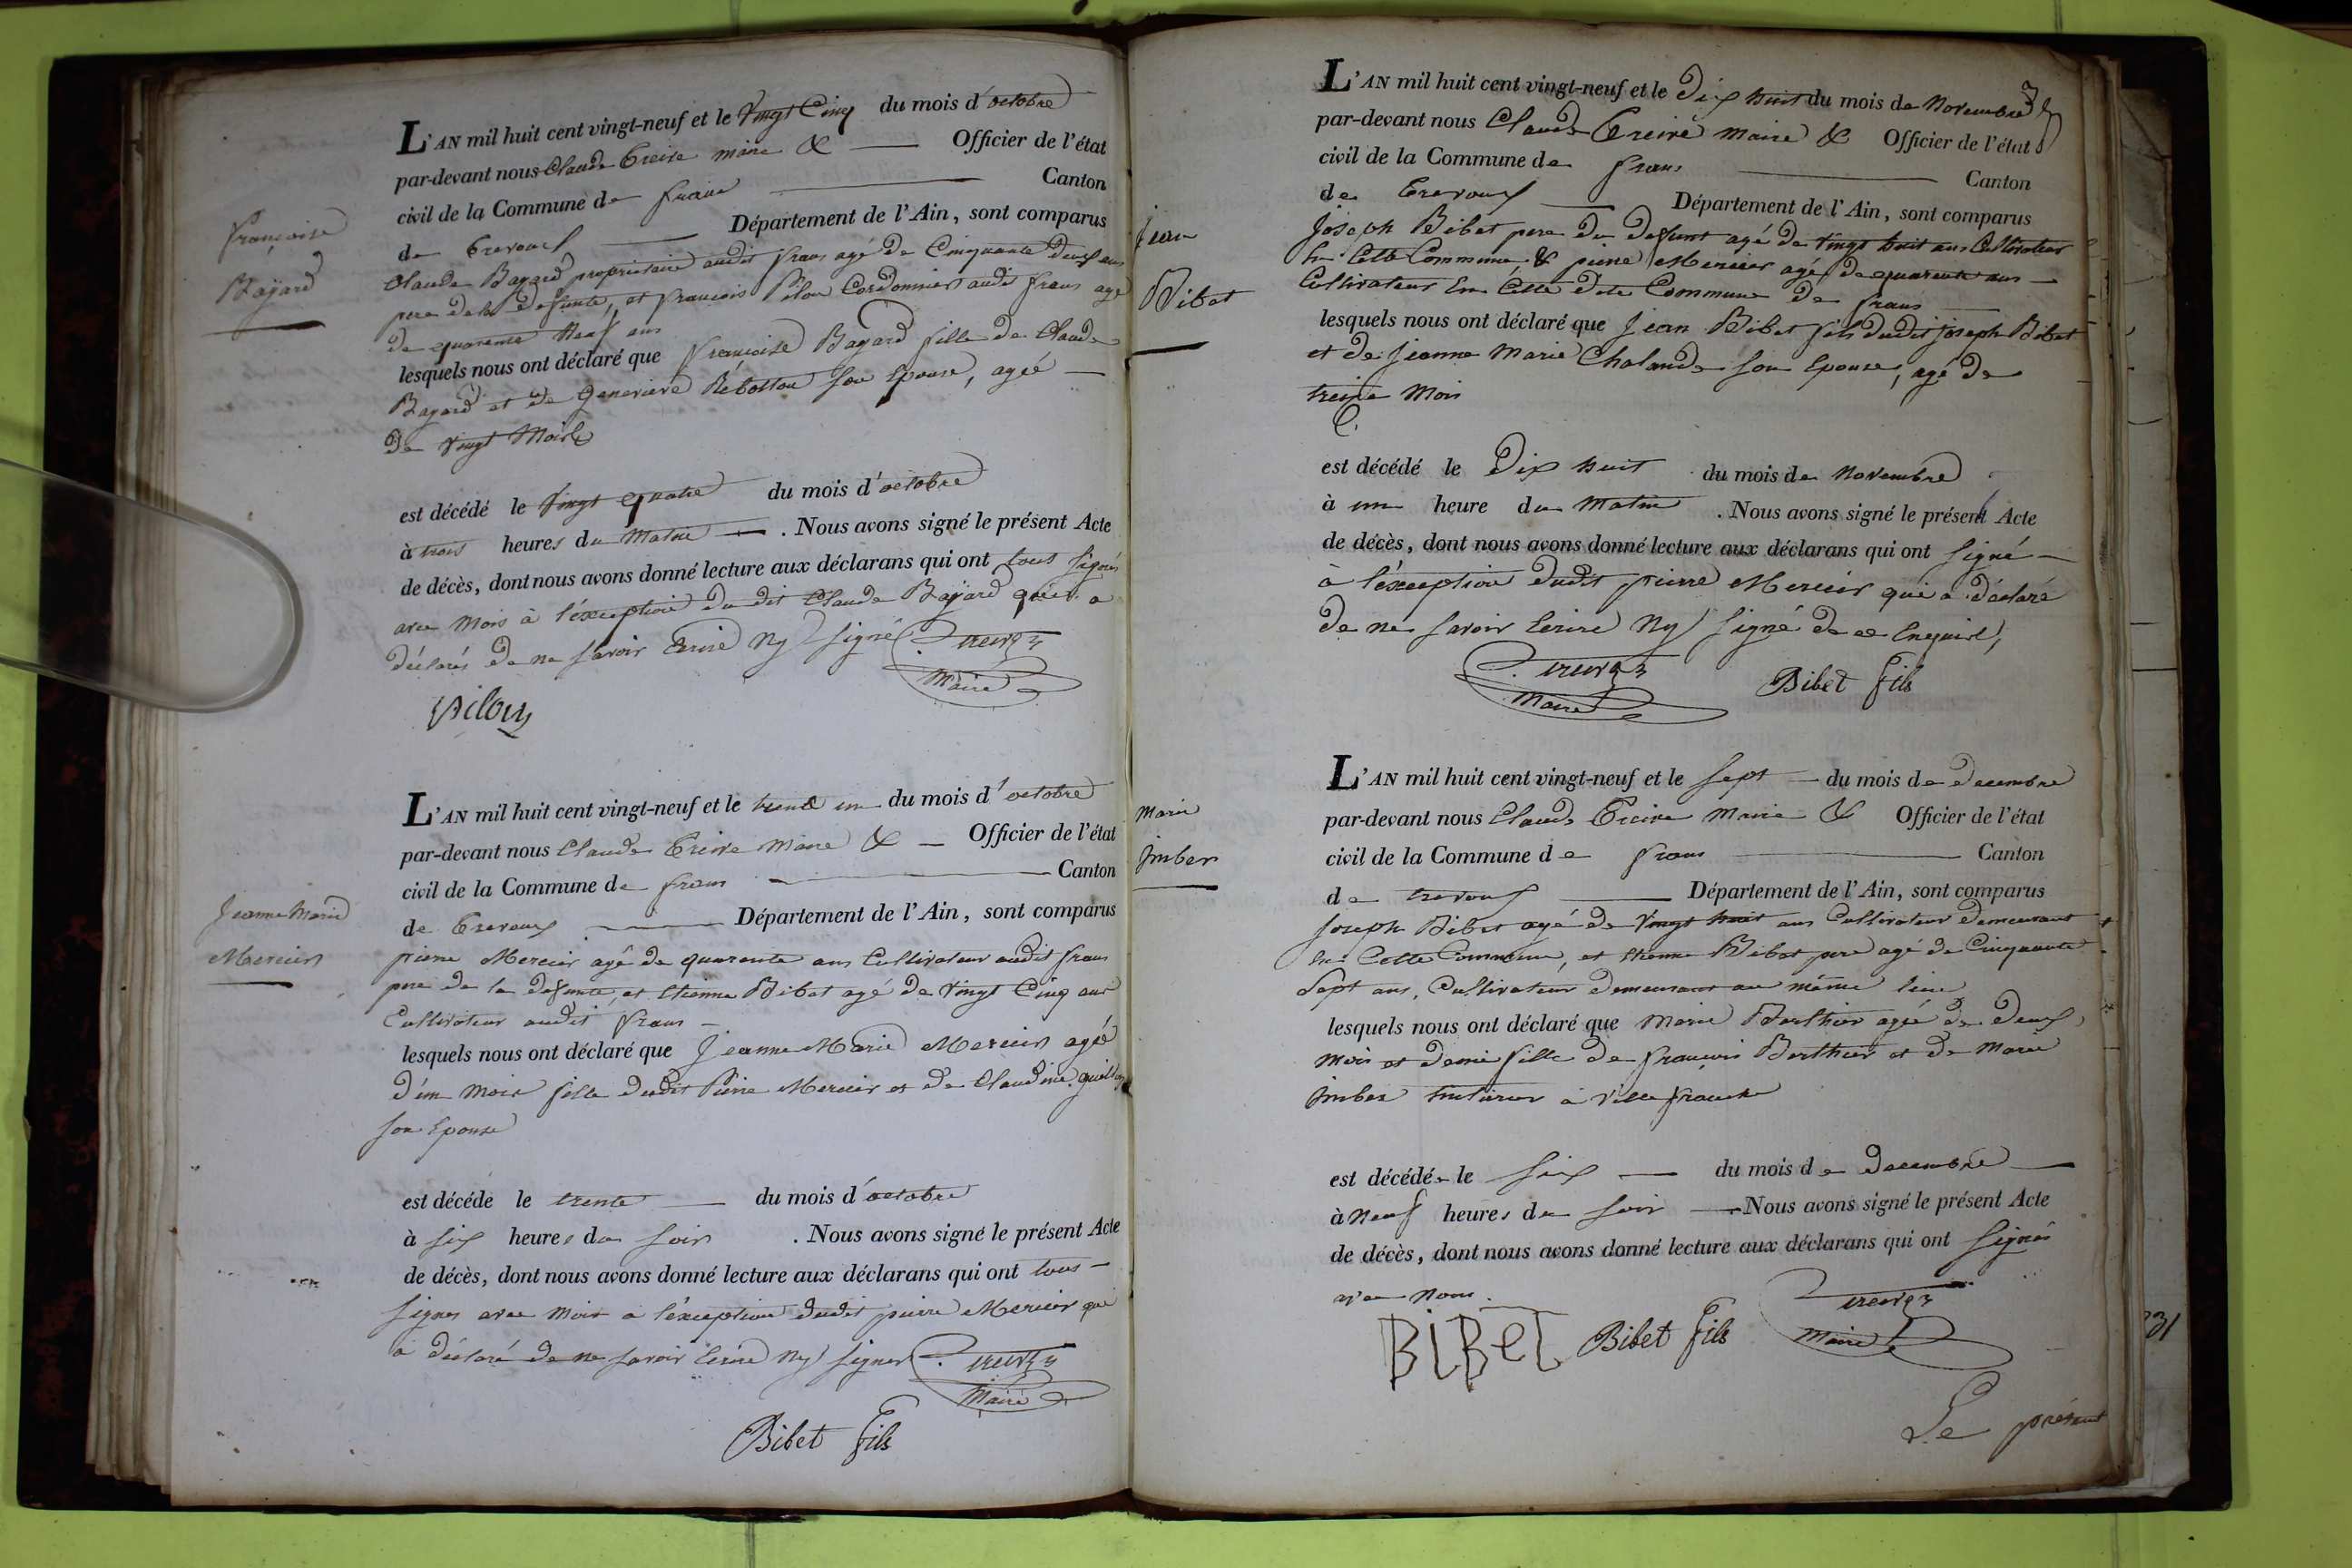 L'AN mil huit cent vingt-neuf et le vingt Cinq du mois d'octobre
par-devant nous Claude Treive maire & Officier de l'état
civil de la Commune de frans Canton
de Trevoux Département de l'Ain, sont comparus
Claude Bayard propriétaire audit frans agé de Cinquante deux ans
pere de la defunte, et françois Pilon Cordonnier audit frans agé
de quarante Neuf ans
lesquels nous ont déclaré que françoise Bayard fille de Claude
Bayard et de Genevieve Rébottou son Epouse, agéé
de vingt Mois
est décédé le vingt quatre du mois d'octobre
à trois heures du Matin . Nous avons signé le présent Acte
de décès, dont nous avons donné lecture aux déclarans qui ont tous signés
avec Mois à l'éxception du dit Claude Bayard qui a
déclarés de ne savoir Ecrire Ny Signé C. Treive
Maire
pilon
françoise
Bayard
L'AN mil huit cent vingt-neuf et le trente un du mois d'octobre
par-devant nous Claude Treive Maire & Officier de l'état
civil de la Commune de frans Canton
de Trevoux Département de l'Ain, sont comparus
pierre Mercier agé de quarante ans Cultivateur audit frans
pere de la defunte, et Etienne Bibet agé de vingt Cinq ans
Cultivateur audit frans
lesquels nous ont déclaré que Jeanne Marie Mercier agéé
d'un Mois fille dudit Pierre Mercier et de Claudine
son Epouse
est décédé le trente du mois d'octobre
à six heures du soir . Nous avons signé le présent Acte
de décès, dont nous avons donné lecture aux déclarans qui ont tous
signes avec Mois a l'éxception dudit pierre Mercier qui
a déclaré de ne savoir Ecrire Ny signer C. Treive
Maire
Bibet fils
Jeanne Marie
Mercier
L'AN mil huit cent vingt-neuf et le Dix huit du mois de Novembre
par-devant nous Claude Treive Maire & Officier de l'état
civil de la Commune de frans Canton
de Trevoux Département de l'Ain, sont comparus
Joseph Bibet pere du defunt agé de vingt huit ans Cultivateur
En Cette Commune & pierre Mercier agé de quarente ans
Cultivateur En Cette dite Commune de frans
lesquels nous ont déclaré que Jean Bibet fils dudit joseph Bibet
et de Jeanne Marie Chalande son Epouse, agé de
treize Mois
est décédé le Dix huit du mois de Novembre
à une heure du Matin . Nous avons signé le présent Acte
de décès, dont nous avons donné lecture aux déclarans qui ont signé
à l'éxception dudit pierre Mercier qui a déclaré
de ne savoir Ecrire Ny Signé de ce Enquire,
C. Treive
Maire
Bibet fils
jean
Bibet
L'AN mil huit cent vingt-neuf et le sept du mois de Decembre
par-devant nous Claude Treive Maire & Officier de l'état
civil de la Commune de frans Canton
de trevoux Département de l'Ain, sont comparus
Joseph Bibet agé de vingt huit ans Cultivateur demeurant
En Cette Commune, et Etienne Bibet pere agé de Cinquante
Sept ans, Cultivateur demeurant au même lieu
lesquels nous ont déclaré que Marie Berthier agée de deux
mois et demi fille de françois Berthier et de Marie
Imber à Villefranche
est décédée le six du mois de Decembre
à neuf heures du soir Nous avons signé le présent Acte
de décès, dont nous avons donné lecture aux déclarans qui ont signés
avec Nous.
BiBeT Bibet fils C. Treive
Maire
Marie
Imber
Le présent